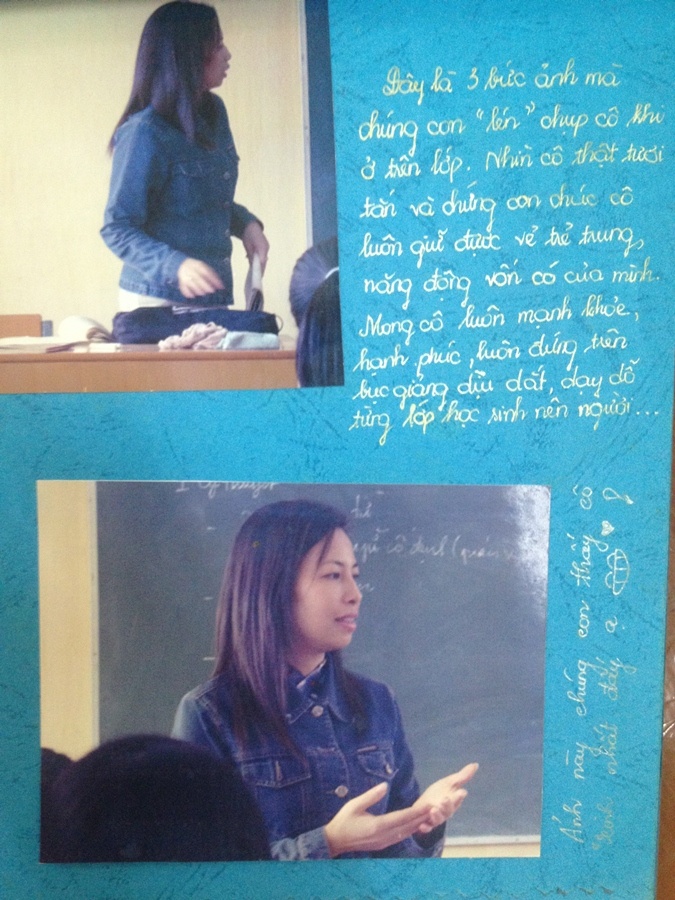 Đây là 3 bức ảnh mà
chúng con "lén" chụp cô khi
ở trên lớp. Nhìn cô thật tươi
tắn và chúng con chúc cô
luôn giữ được vẻ trẻ trung,
năng động vốn có của mình.
Mong cô luôn mạnh khỏe,
hạnh phúc, luôn đứng trên
bục giảng dìu dắt, dạy dỗ
từng lớp học sinh nên người...
Ảnh này chúng con thấy cô
"xinh" nhất đấy ạ
cố định (quán